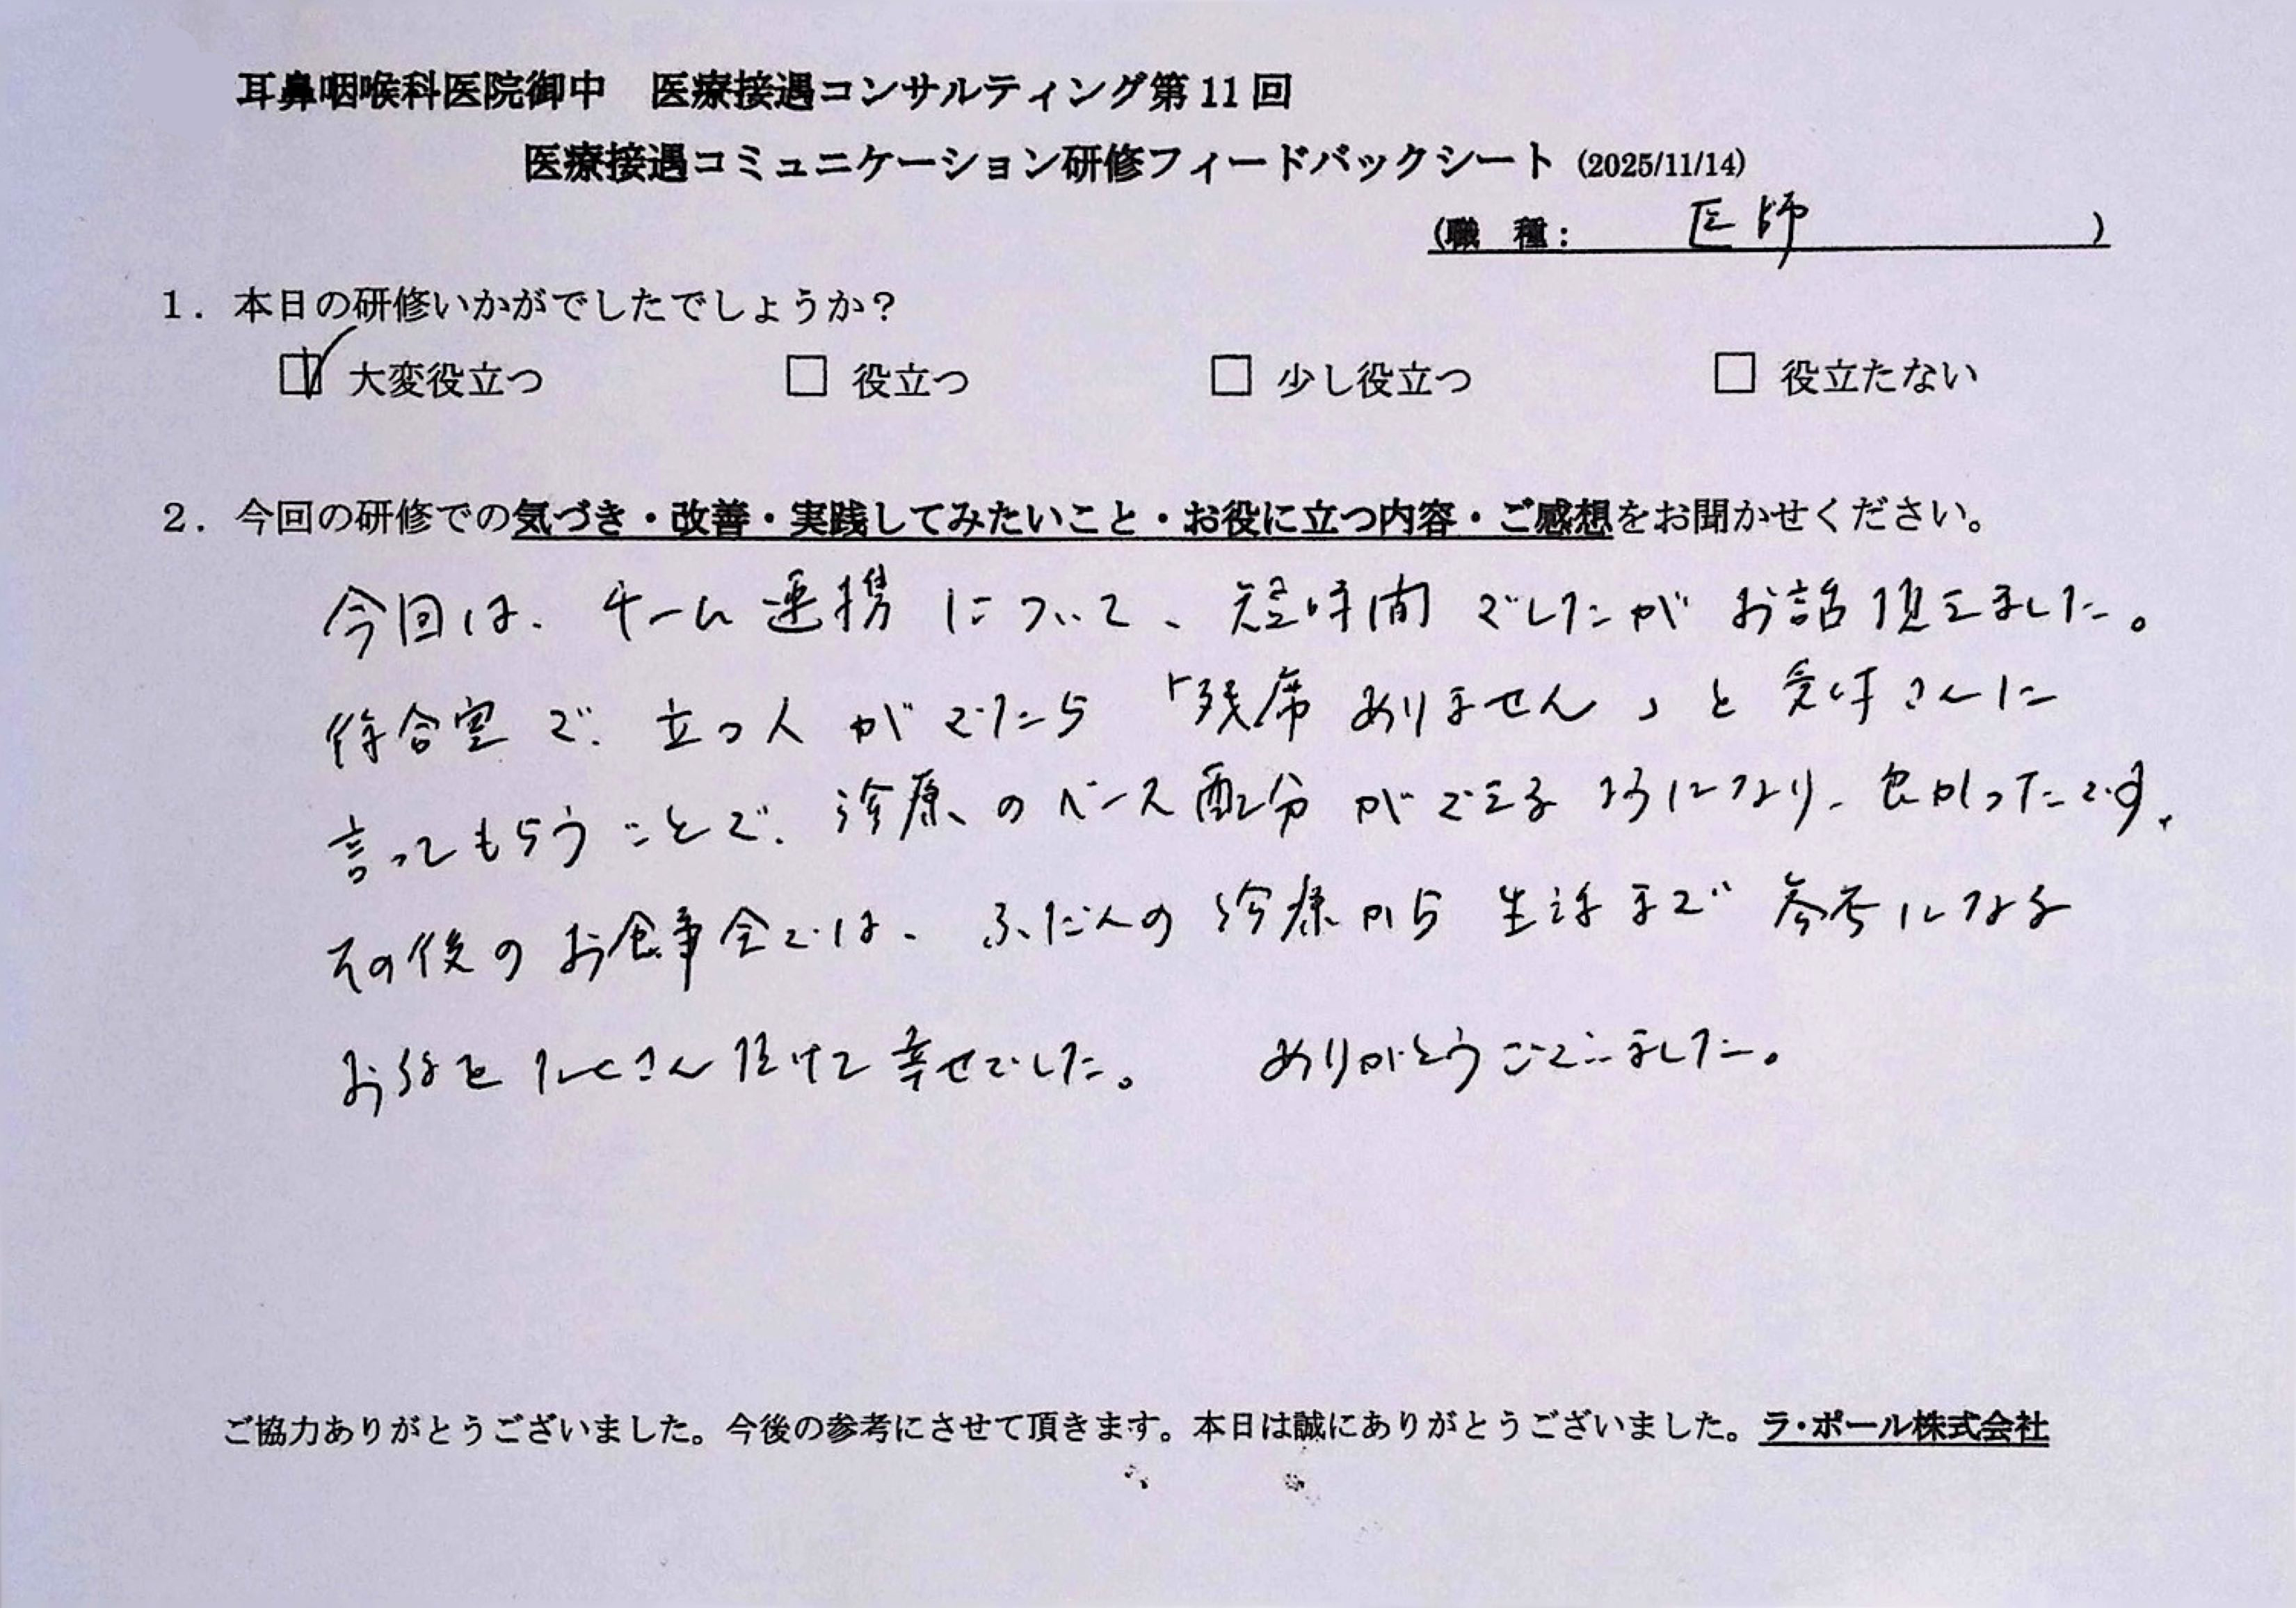 耳鼻咽喉科医院御中 医療接遇コンサルティング第11回
医療接遇コミュニケーション研修フィードバックシート (2025/11/14)
(職 種: 医師 )
1. 本日の研修いかがでしたでしょうか?
☑ 大変役立つ □ 役立つ □ 少し役立つ □ 役立たない
2. 今回の研修での気づき・改善・実践してみたいこと・お役に立つ内容・ご感想をお聞かせください。
今回は、チーム連携について、短時間でしたがお話頂きました。
待合室で、立つ人がでたら「残席ありません」と受付さんに
言ってもらうことで、診療のペース配分ができるようになり、良かったです。
その後のお食事会では、ふだんの診療から生活まで参考になる
お話をたくさん頂けて幸せでした。 ありがとうございました。
ご協力ありがとうございました。今後の参考にさせて頂きます。本日は誠にありがとうございました。ラ・ポール株式会社